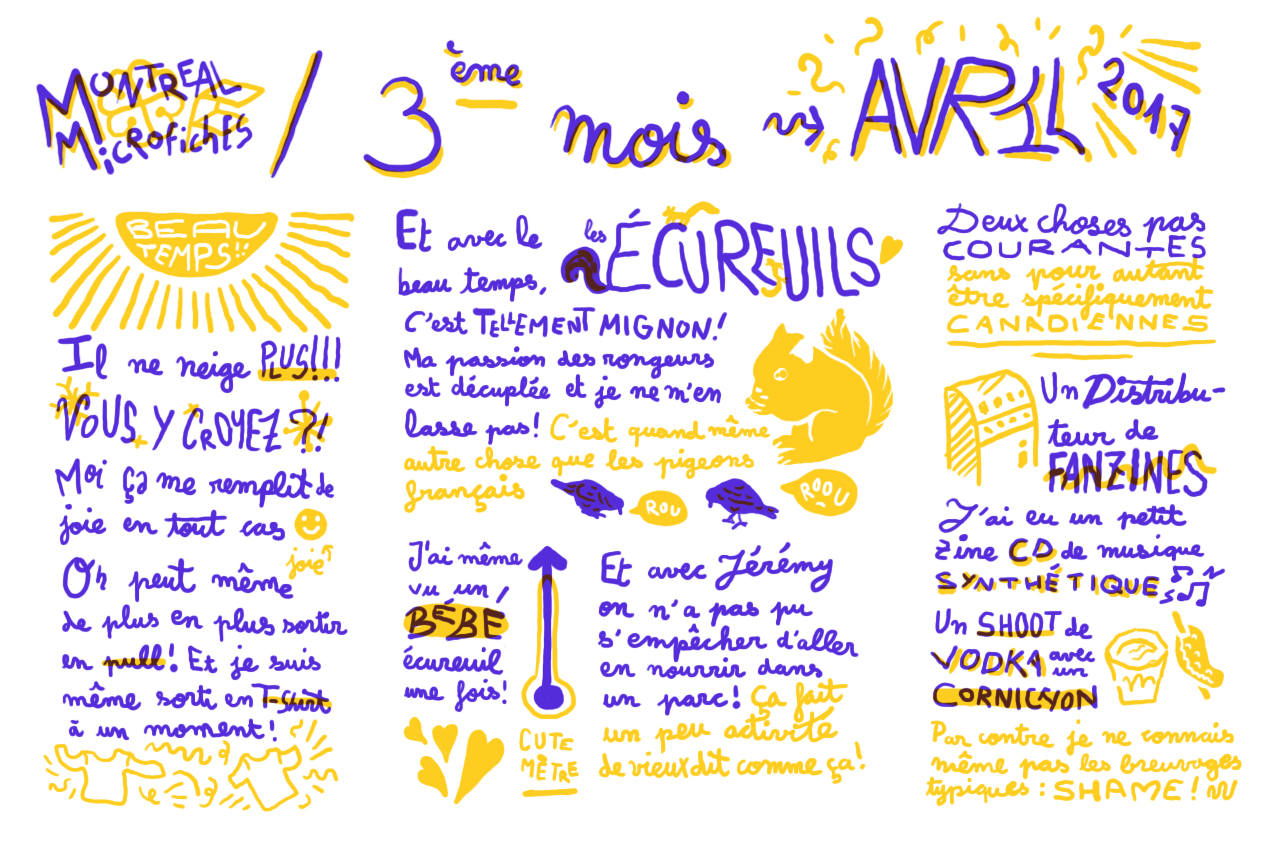 MONTREAL
MicROfichES
/ 3ème mois AVR1L 2017
BEAU
TEMPS!!
Il ne neige PLUS!!!
VOUS Y CROYEZ ?!
Moi ça me remplit de
joie en tout cas
joie
On peut même
de plus en plus sortir
en pull! Et je suis
même sorti en T-shirt
à un moment!
Et avec le
beau temps,
les
ÉCUREUILS
C'est TELLEMENT MIGNON!
Ma passion des rongeurs
est décuplée et je ne m'en
lasse pas! C'est quand même
autre chose que les pigeons
français
ROU
ROOU
J'ai même
vu un
BÉBÉ
écureuil
une fois!
CUTE
MÈTRE
Et avec Jérémy
on n'a pas pu
s'empêcher d'aller
en nourrir dans
un parc! Ça fait
un peu activité
de vieux dit comme ça!
Deux choses pas
COURANTES
sans pour autant
être spécifiquement
CANADIENNES
Un Distribu-
teur de
FANZINES
J'ai eu un petit
zine CD de musique
SYNTHÉTIQUE
Un SHOOT de
VODKA avec
un
CORNICHON
Par contre je ne connais
même pas les breuvages
typiques : SHAME!